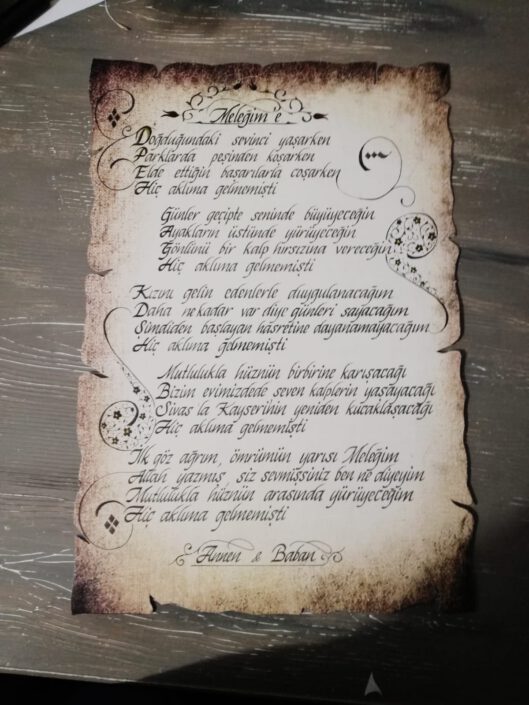 Meleğim'e
Doğduğundaki sevinci yaşarken
Parklarda peşinden koşarken
Elde ettiğin başarılarla coşarken
Hiç aklıma gelmemişti
Günler geçipte seninde büyüyeceğin
Ayakların üstünde yürüyeceğin
Gönlünü bir kalp hırsızına vereceğin
Hiç aklıma gelmemişti
Kızını gelin edenlerle duygulanacağım
Daha nekadar var diye günleri sayacağım
Şimdiden başlayan hasretine dayanamayacağım
Hiç aklıma gelmemişti
Mutlulukla hüznün birbirine karışacağı
Bizim evimizdede seven kalplerin yaşayacağı
Sivas'la Kayserinin yeniden kucaklaşacağı
Hiç aklıma gelmemişti
İlk göz ağrım, ömrümün yarısı Meleğim
Allah yazmış, siz sevmişsiniz ben ne diyeyim
Mutlulukla hüznün arasında yürüyeceğim
Hiç aklıma gelmemişti
Annen & Baban